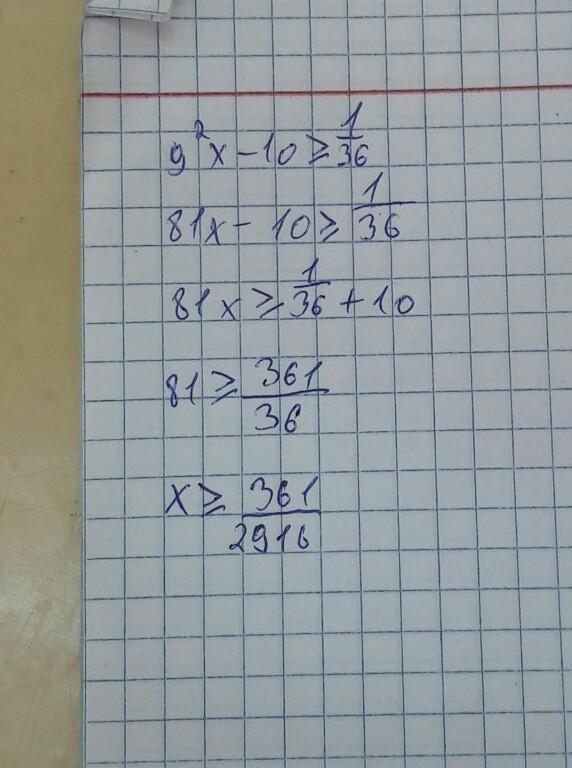 9²x - 10 ≥ 1/36
81x - 10 ≥ 1/36
81x ≥ 1/36 + 10
81 ≥ 361/36
x ≥ 361/2916